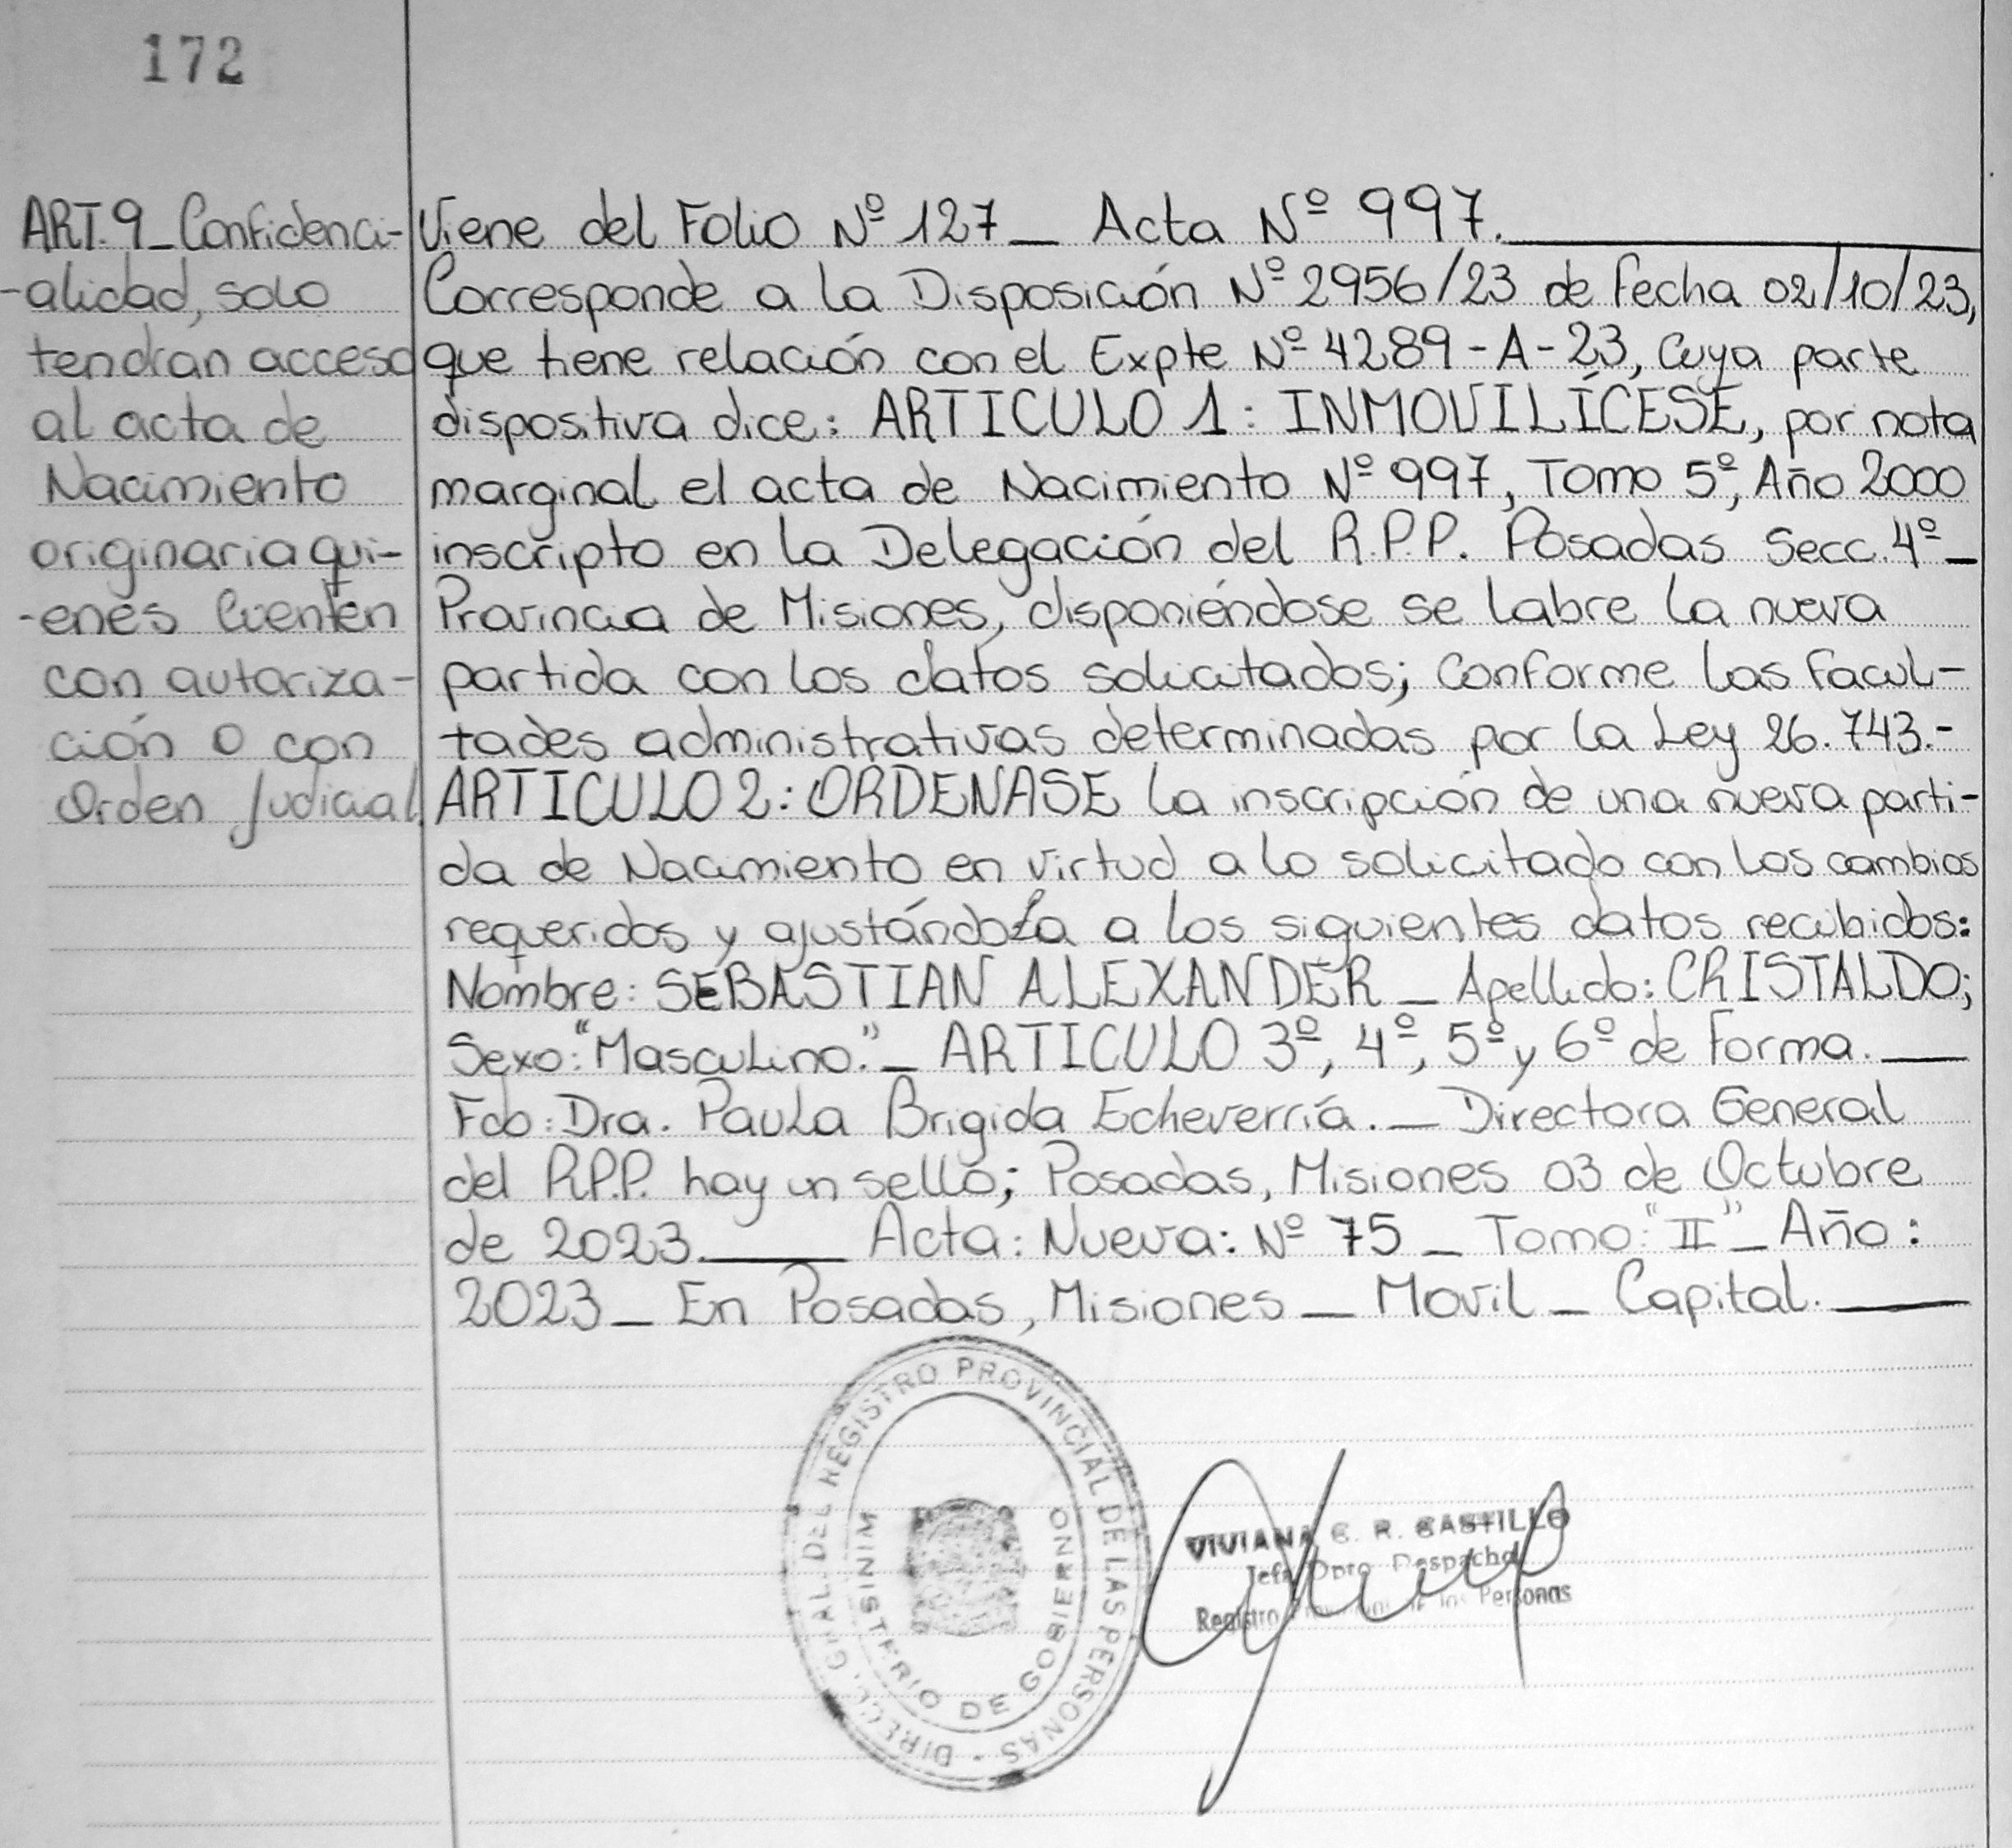 172
ART. 9_ Confidenci-
-alidad, solo
tendran acceso
al acta de
Nacimiento
originaria qui-
-enes Cuenten
con autoriza-
ción o con
Orden Judicial.
Viene del Folio Nº 127_ Acta Nº 997.
Corresponde a la Disposición Nº 2956/23 de Fecha 02/10/23,
que tiene relación con el Expte Nº 4289-A-23, Cuya parte
dispositiva dice: ARTICULO 1: INMOVILÍCESE, por nota
marginal el acta de Nacimiento Nº 997, Tomo 5º, Año 2000
inscripto en la Delegación del R.P.P. Posadas Secc. 4º_
Provincia de Misiones, disponiéndose se labre la nueva
partida con los datos solicitados; Conforme las Facul-
tades administrativas determinadas por la Ley 26.743.-
ARTICULO 2: ORDENASE la inscripción de una nueva parti-
da de Nacimiento en virtud a lo solicitado con los cambios
requeridos y ajustándola a los siguientes datos recibidos:
Nombre: SEBASTIAN ALEXANDER _ Apellido: CRISTALDO;
Sexo: "Masculino." _ ARTICULO 3º, 4º, 5º y 6º de Forma.
Fdo: Dra. Paula Brigida Echeverría. _ Directora General
del R.P.P. hay un sello; Posadas, Misiones 03 de Octubre
de 2023. Acta: Nueva: Nº 75 _ Tomo: "II" _ Año:
2023 _ En Posadas, Misiones _ Movil _ Capital.
DIRECC. GRAL DEL REGISTRO PROVINCIAL DE LAS PERSONAS -
MINISTERIO DE GOBIERNO
VIVIANA C. R. CASTILLO
Jefe Dpto Despacho
Registro Provincial de las Personas